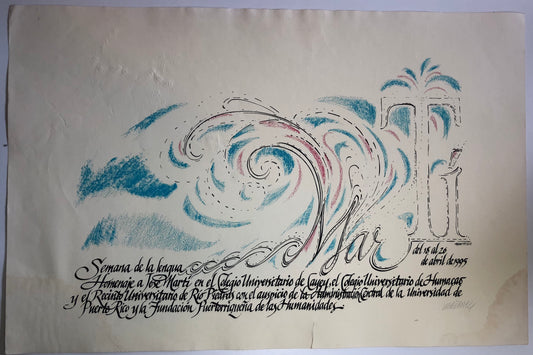 Mar Ti
del 18 al 20
de abril de 1995
Semana de la lengua
Homenaje a José Martí en el Colegio Universitario de Cayey, el Colegio Universitario de Humacao
y el Recinto Universitario de Río Piedras con el auspicio de la Administración Central de la Universidad de
Puerto Rico y la Fundación Puertorriqueña de las Humanidades